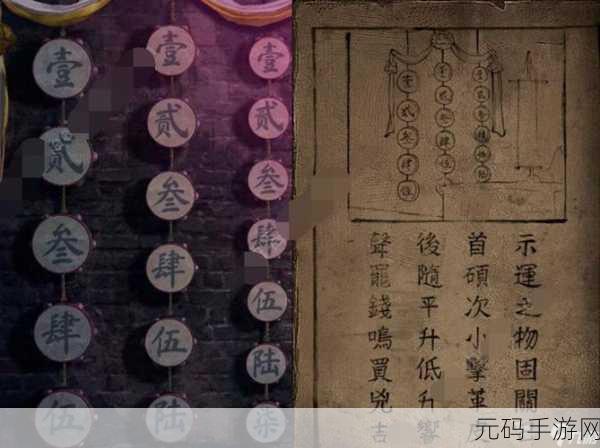 壹貳叁肆伍
壹貳叁肆伍陸
壹貳叁肆伍陸柒
示運之物固關
首碩次小擊革
後隨平升低響
聲罷錢鳴買兇吉
元码手游网